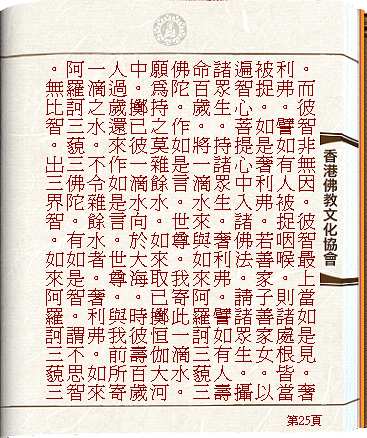 。而彼智非無因。彼智最上當如是見。奢
利弗。譬如有人被捉咽喉。則諸處根皆當
被捉。如是奢利弗。若善家子善家女。以
遍智心菩提心中入諸佛法。請諸眾生。攝
諸眾生。持諸眾生。奢利弗。譬如有人壽
命百歲。將一滴水來與如來阿羅訶三藐三
佛陀。作如是言。世尊。我寄此一滴水。
願爲持之莫雜餘水。如來取已擲恒伽大河
中。擲已彼一滴水向於大海。時彼壽百歲
人過歲還來作如是言。世尊。與我前所寄
一滴之水。不令雜餘水者。奢利弗。如來
阿羅訶三藐三佛陀。有如是智。謂不思智
。無比智。出三界智。如來阿羅訶三藐三
香港佛教文化協會
第25頁